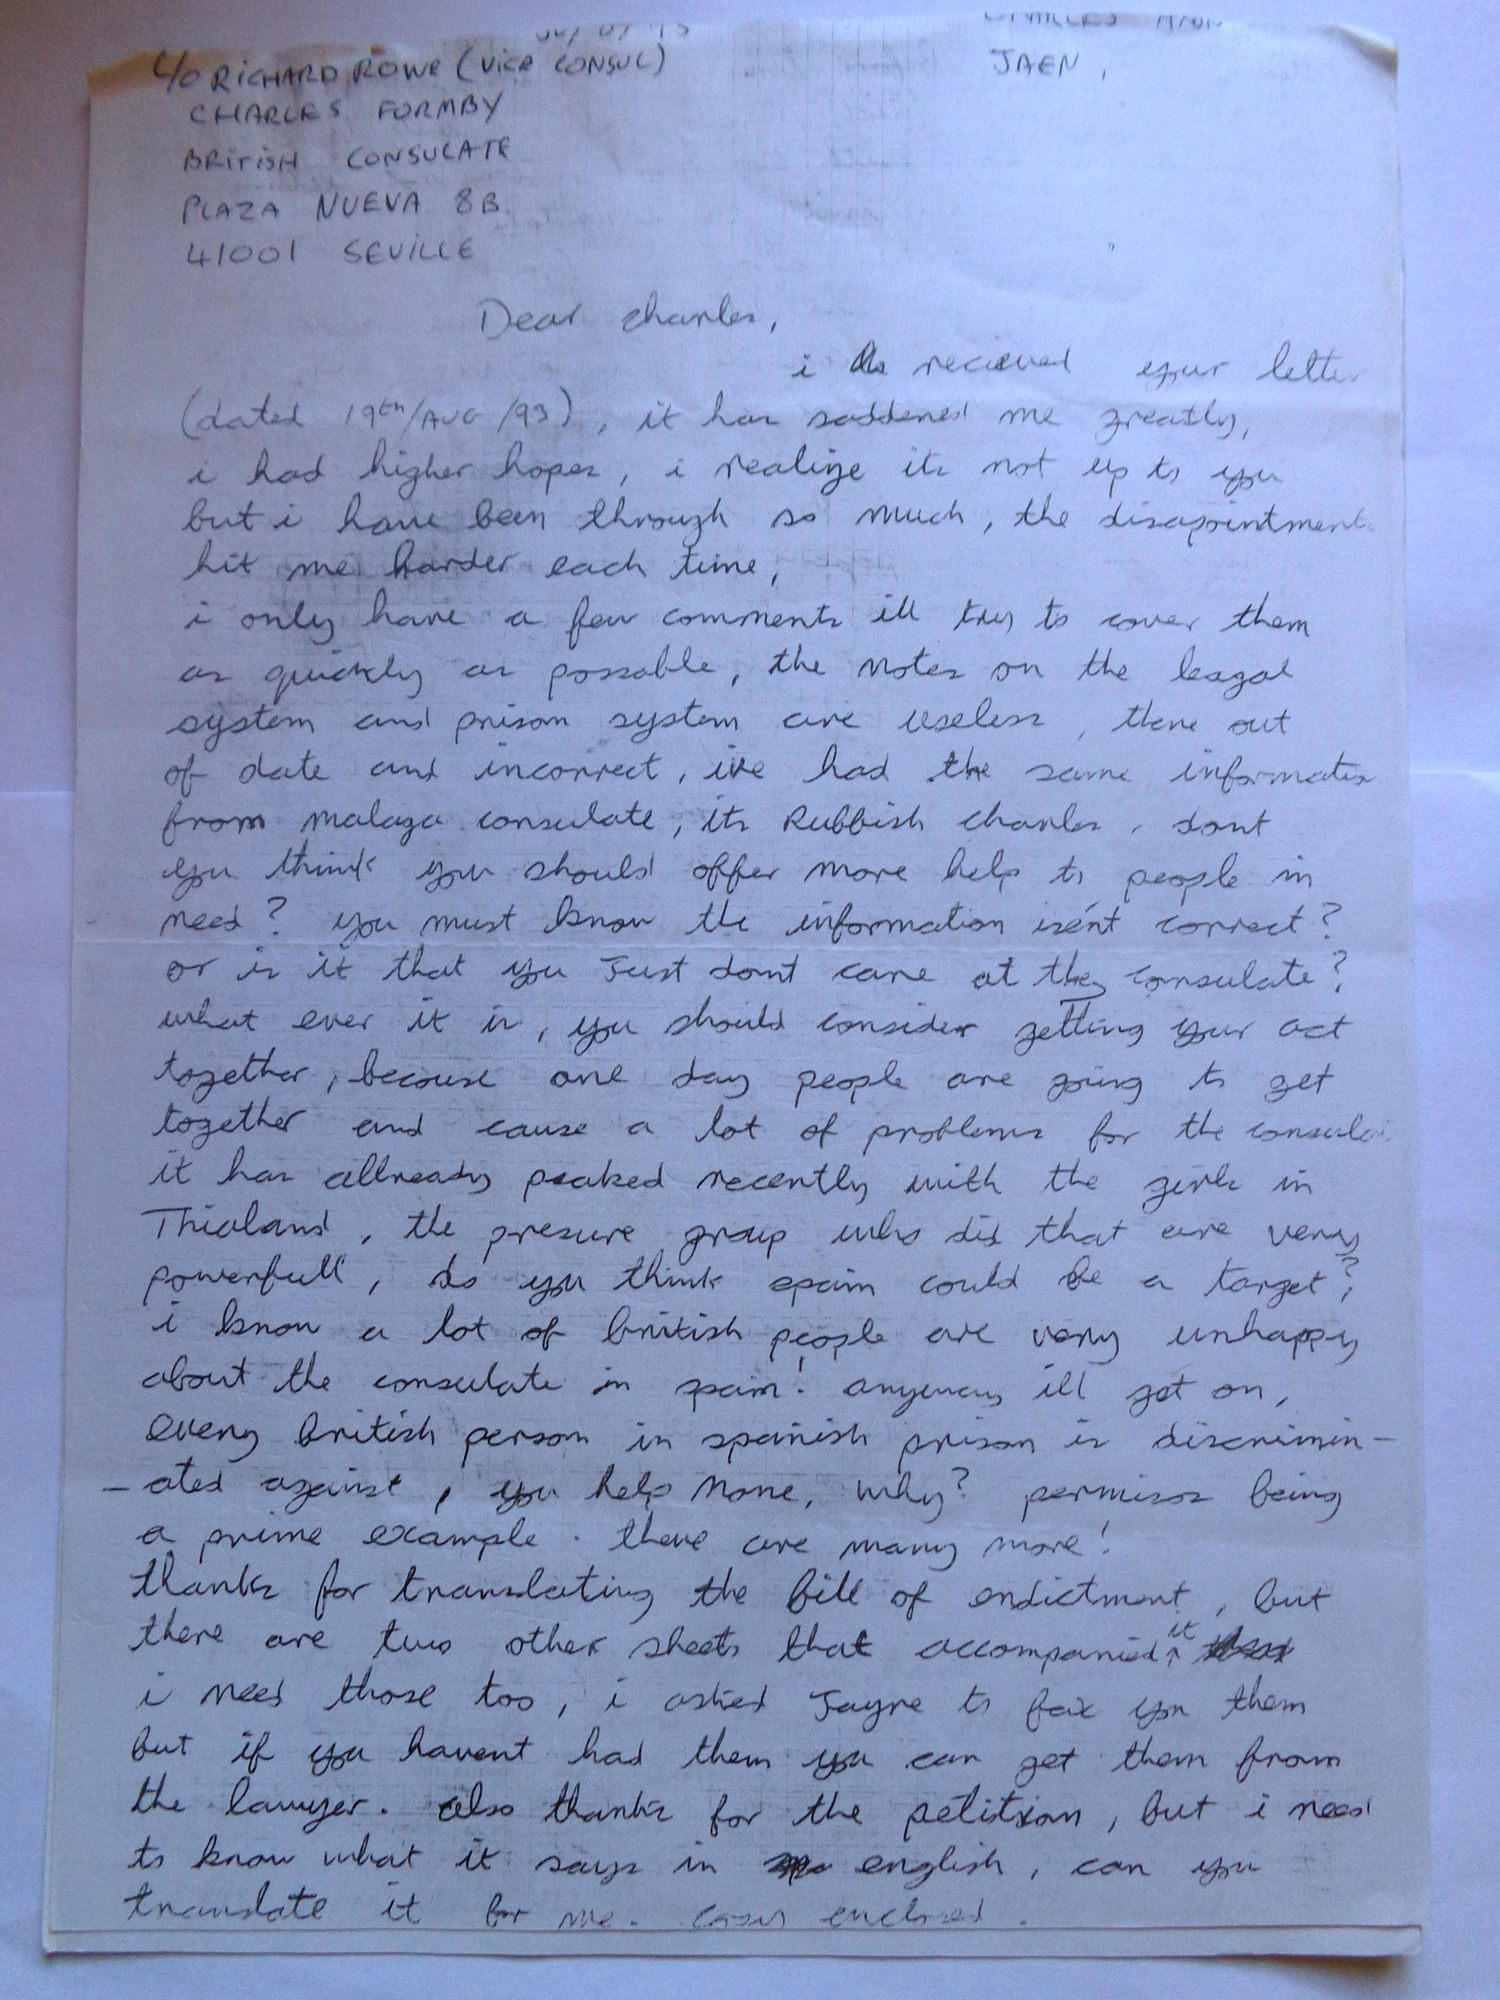 CHARLES
C/O RICHARD ROWE (VICE CONSUL) JAEN,
CHARLES FORMBY
BRITISH CONSULATE
PLAZA NUEVA 8B
41001 SEVILLE
Dear Charles,
i recieved your letter
(dated 19th/AUG/93), it has saddened me greatly,
i had higher hopes, i realize its not up to you
but i have been through so much, the disapointments
hit me harder each time,
i only have a few comments ill try to cover them
as quickly as possable, the notes on the leagal
system and prison system are useless, there out
of date and incorrect, ive had the same information
from malaga consulate, its Rubbish charles, dont
you think you should offer more help to people in
need? you must know the information isen't correct?
or is it that you Just dont care at the consulate?
what ever it is, you should consider getting your act
together, becouse one day people are going to get
together and cause a lot of problems for the consulate
it has allready peaked recently with the girls in
Thialand, the presure group who did that are very
powerfull, do you think spain could be a target?
i know a lot of british people are very unhappy
about the consulate in spain! anyway ill get on,
every british person in spanish prison is discrimin-
-ated against, you help none, why? permisos being
a prime example. there are many more!
thanks for translating the bill of endictment, but
there are two other sheets that accompanied it
i need those too, i asked Jayne to fax you them
but if you havent had them you can get them from
the lawyer. also thanks for the petition, but i need
to know what it says in english, can you
translate it for me. copy enclosed.